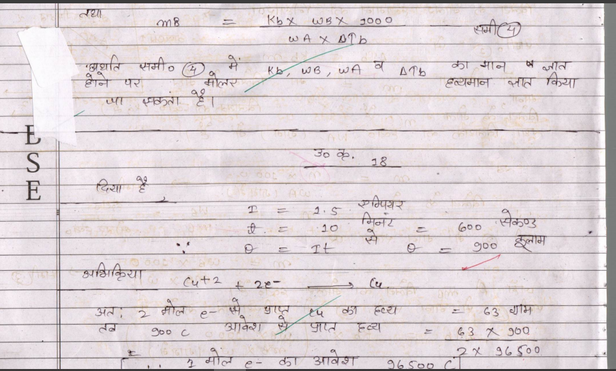 तथा
mB = Kb x WB x 1000
WA x ΔTb
समी (4)
अर्थात समी० (4) में Kb, WB, WA व ΔTb का मान ज्ञात
होने पर मोलर द्रव्यमान ज्ञात किया
जा सकता है।
उ० क्र. 18
दिया है
I = 1.5 एम्पियर
t = 10 मिनट = 600 सेकण्ड
∵ Q = It से Q = 900 कूलाम
अभिक्रिया
Cu+2 + 2e- ⟶ Cu
अतः 2 मोल e- से प्राप्त Cu का द्रव्य = 63 ग्राम
तब 900 C आवेश से प्राप्त द्रव्य = 63 x 900
2 x 96500
∵ 1 मोल e- का आवेश 96500 C
B
S
E